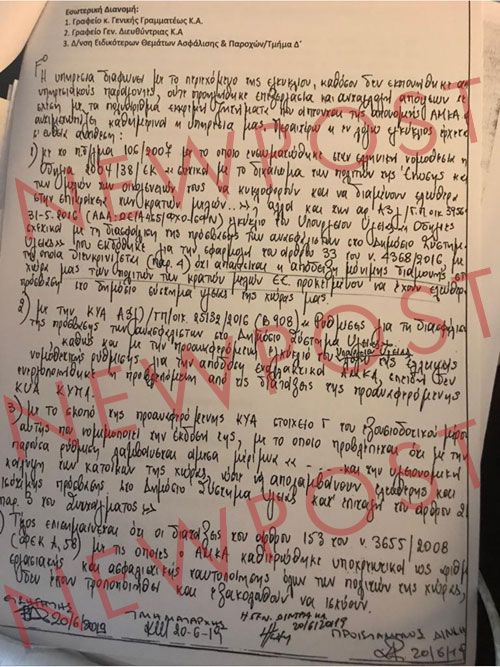 Εσωτερική Διανομή:
1. Γραφείο κ. Γενικής Γραμματέως Κ.Α.
2. Γραφείο Γεν. Διευθύντριας Κ.Α
3. Δ/νση Ειδικότερων Θεμάτων Ασφάλισης & Παροχών/Τμήμα Δ΄
Η υπηρεσία διαφωνεί με το περιεχόμενο της εγκυκλίου, καθόσον δεν εκπονήθηκε
υπηρεσιακούς παράγοντες, ούτε προηγήθηκε επεξεργασία και ανταλλαγή απόψεων
σχέση με τα πολυάριθμα ζητήματα που άπτονται της απονομής ΑΜΚΑ
αντιμετωπίζει καθημερινά η υπηρεσία μας. Περαιτέρω η εν λόγω εγκύκλιος έρχεται
σε αντίθεση:
1) με το π.δ/γμα 106/2007 με το οποίο ενσωματώθηκε στην ελληνική νομοθεσία η
Οδηγία 2004/38/ΕΚ «σχετικά με το δικαίωμα των πολιτών της Ένωσης και
των μελών των οικογενειών τους να κυκλοφορούν και να διαμένουν ελεύθερα
στην επικράτεια των κρατών μελών...», αλλά και την αρ. Α3γ/Γ.Π.οικ.
31-5-2016 εγκύκλιο του Υπουργείου Υγείας «Οδηγίες
σχετικά με τη διασφάλιση της πρόσβασης των ανασφαλίστων στο Δημόσιο Σύστημα
Υγείας» που εκδόθηκε για την εφαρμογή του άρθρου 33 του ν. 4368/2016, με
την οποία διευκρινίζεται (παρ. 4) ότι απαιτείται η απόδειξη μόνιμης διαμονής στη
χώρα μας των πολιτών των κρατών μελών Ε.Ε. προκειμένου να έχουν ελεύθερη
πρόσβαση στο δημόσιο σύστημα υγείας της χώρας μας.
2) με την ΚΥΑ Α3(γ)/ΓΠ/οικ. 25132/2016 (Β 908) «Ρυθμίσεις για τη διασφάλιση
της πρόσβασης των ανασφαλίστων στο Δημόσιο Σύστημα Υγείας»
καθώς και με την προαναφερόμενη εγκύκλιο του Υπουργείου Υγείας
νομοθετικής ρύθμισης για την απόδοση ΑΜΚΑ, επειδή δεν
ενεργοποιήθηκε η προβλεπόμενη από τις διατάξεις της προαναφερόμενης
ΚΥΑ ΚΥΠΑ.
3) με το σκοπό της προαναφερόμενης ΚΥΑ στοιχείο Γ του εξουσιοδοτικού μέρους
αυτής που νομιμοποιεί την έκδοσή της, με το οποίο προβλέπεται ότι με την
παρούσα ρύθμιση λαμβάνεται άμεσα μέριμνα «......... και την υγειονομική
κάλυψη των κατοίκων της χώρας, ώστε να απολαμβάνουν ελεύθερης και
ισότιμης πρόσβασης στο Δημόσιο Σύστημα Υγείας κατ' επιταγή του άρθρου 21
παρ. 3 του Συντάγματος»
Τέλος επισημαίνεται ότι οι διατάξεις του άρθρου 153 του ν. 3655/2008
(ΦΕΚ Α, 58) με τις οποίες ο ΑΜΚΑ καθιερώθηκε υποχρεωτικά ως αριθμός
εργασιακής και ασφαλιστικής ταυτοποίησης όλων των πολιτών της χώρας,
δεν έχουν τροποποιηθεί και εξακολουθούν να ισχύουν.
20/6/2019
ΤΜΗΜΑΤΑΡΧΗΣ
20-6-19
Η ΓΕΝ. ΔΙΝΤΡΙΑ ΚΑ
20/6/2019
ΠΡΟΙΣΤΑΜΕΝΟΣ ΔΙΝΣΗΣ
20/6/19
NEWPOST
NEWPOST
NEWPOST